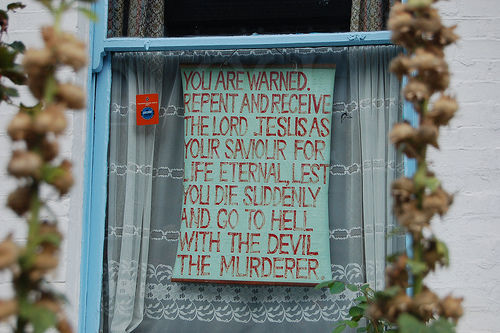 YOU ARE WARNED.
REPENT AND RECEIVE
THE LORD JESUS AS
YOUR SAVIOUR FOR
LIFE ETERNAL, LEST
YOU DIE SUDDENLY
AND GO TO HELL
WITH THE DEVIL
THE MURDERER.